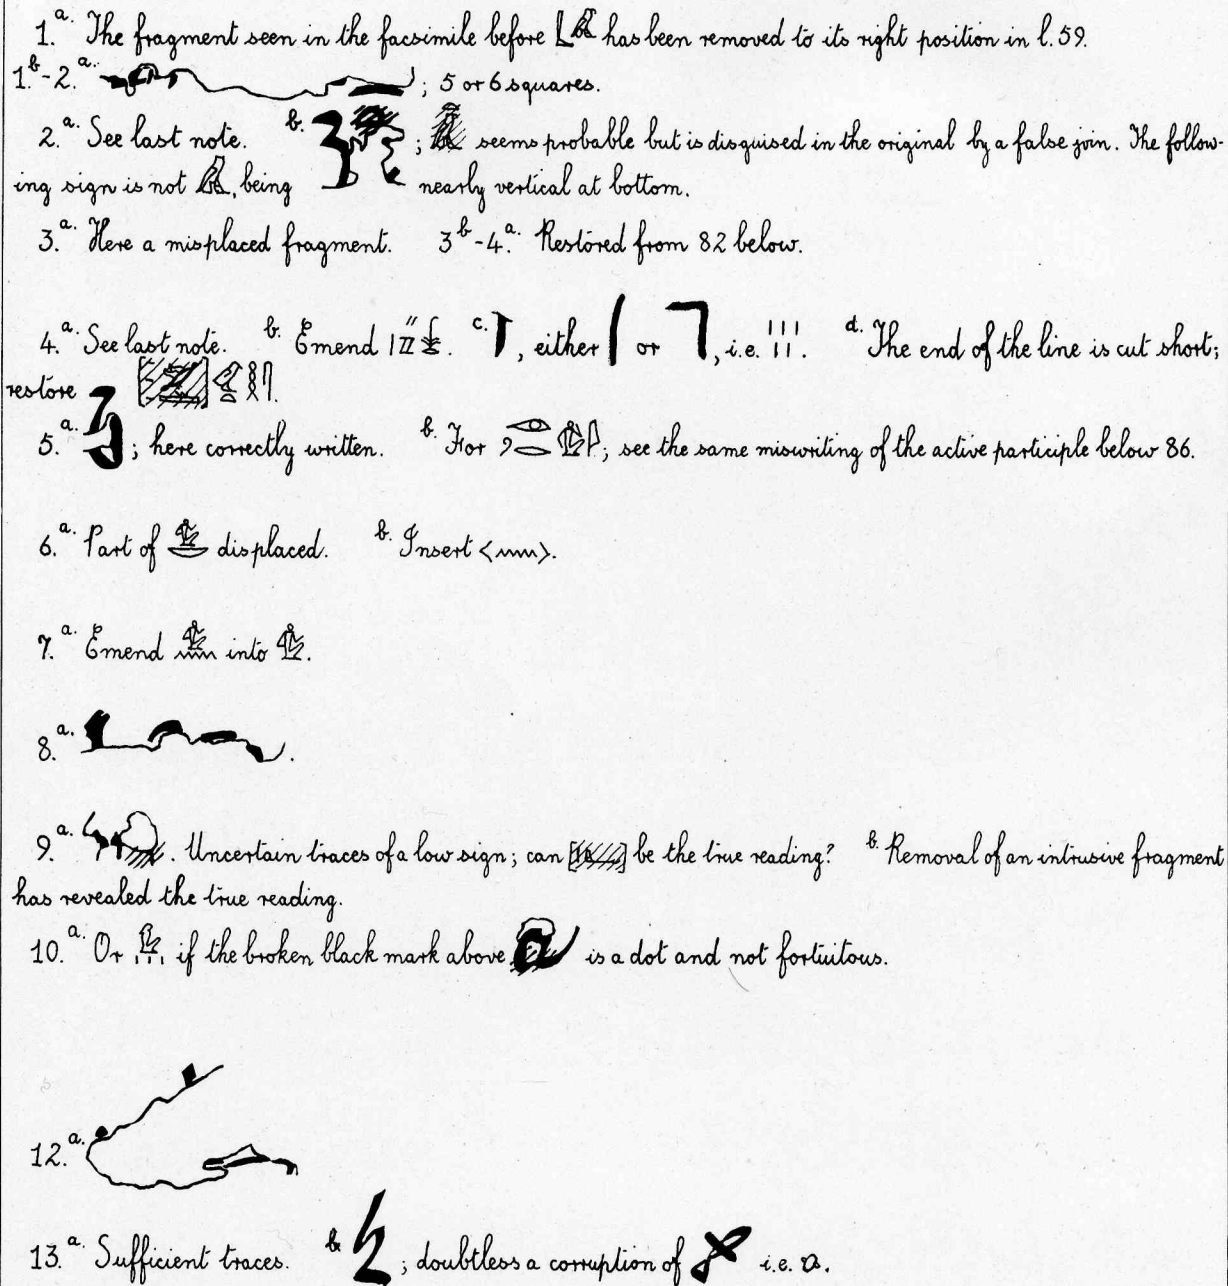 1.a. The fragment seen in the facsimile before has been removed to its right position in l. 59.
1.b-2.a. ; 5 or 6 squares.
2.a. See last note. b. ; seems probable but is disguised in the original by a false join. The follow-
ing sign is not , being nearly vertical at bottom.
3.a. Here a misplaced fragment. 3b-4.a. Restored from 82 below.
4.a. See last note. b. Emend . c. , either or , i.e. . d. The end of the line is cut short;
restore .
5.a. ; here correctly written. b. For ; see the same miswriting of the active participle below 86.
6.a. Part of displaced. b. Insert < 𓈖 >.
7.a. Emend into .
8.a. .
9.a. . Uncertain traces of a low sign; can be the true reading? b. Removal of an intrusive fragment
has revealed the true reading.
10.a. Or , if the broken black mark above is a dot and not fortuitous.
12.a.
13.a. Sufficient traces. b. ; doubtless a corruption of i.e. .